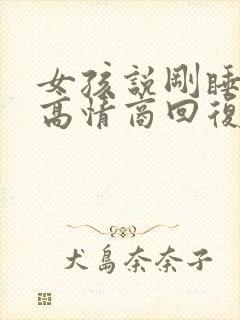 女孩説剛睡
高情商回復
犬島奈奈子